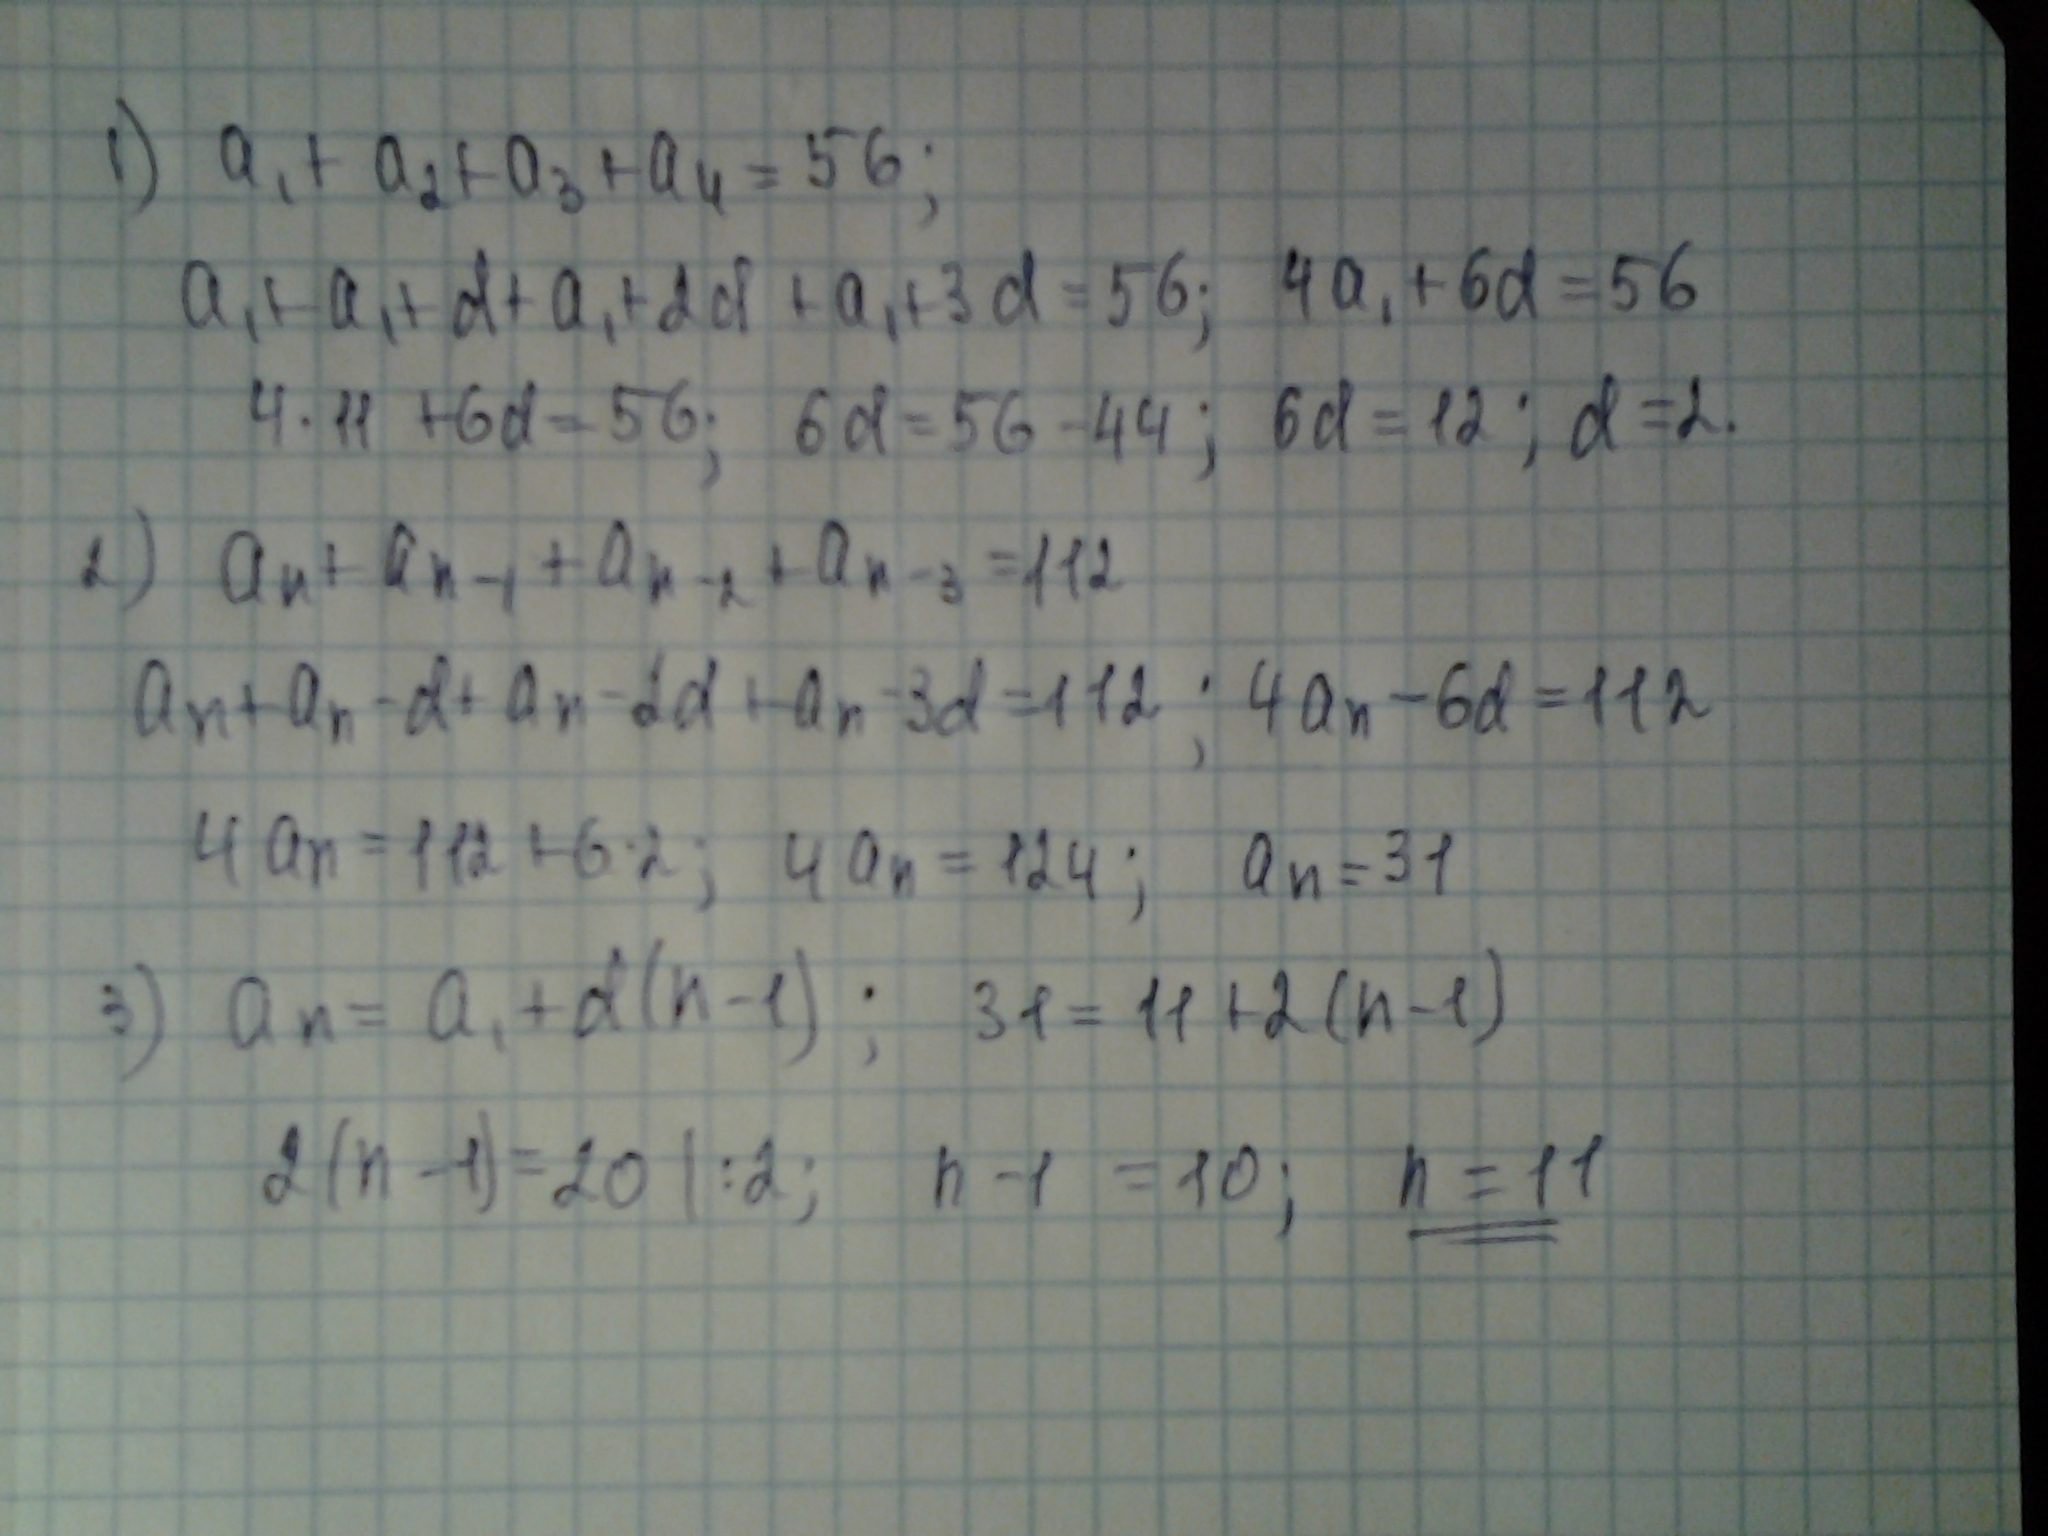 1) a₁ + a₂ + a₃ + a₄ = 56;
a₁ + a₁ + d + a₁ + 2d + a₁ + 3d = 56; 4a₁ + 6d = 56
4 · 11 + 6d = 56; 6d = 56 - 44; 6d = 12; d = 2.
2) aₙ + aₙ₋₁ + aₙ₋₂ + aₙ₋₃ = 112
aₙ + aₙ - d + aₙ - 2d + aₙ - 3d = 112; 4aₙ - 6d = 112
4aₙ = 112 + 6·2; 4aₙ = 124; aₙ = 31
3) aₙ = a₁ + d(n - 1); 31 = 11 + 2(n - 1)
2(n - 1) = 20 | :2; n - 1 = 10; n = 11